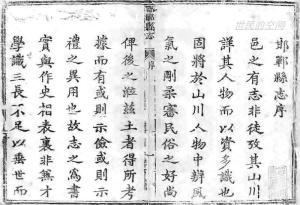 邯鄲縣志序
邑之有志非徒攷其山川
詳其人物而以資多識也
固將於山川人物中辨風
氣之剛柔審民俗之好尚
俾後之涖茲土者得所考
據而有或則示儉或則示
禮之異用也故志之爲書
實與作史相表裏非兼才
學識三長不足以垂世而